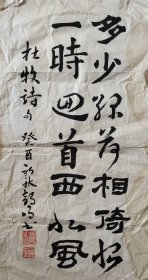 多少緑荷相倚恨
一時回首西風
杜牧詩句
癸酉初秋